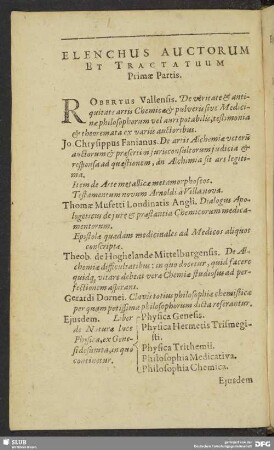 ELENCHUS AUCTORUM
ET TRACTATUUM
Primæ Partis.
ROBERTUS Vallensis. De veritate & anti-
quitate artis Chemicæ & pulveris sive Medici-
næ philosophorum vel auri potabilis, testimonia
& theoremata ex variis auctoribus.
Jo. Chrysippus Fanianus. De arte Alchimiæ veterū
auctorum & præsertim jurisconsultorum judicia &
responsa ad quæstionem, an Alchimia sit ars legiti-
ma.
Item de Arte metallicæ metamorphoseos.
Testamentum novum Arnoldi à Villanova.
Thomæ Mufetti Londinatis Angli. Dialogus Apo-
logeticus de jure & præstantia Chemicorum medica-
mentorum.
Epistolæ quædam medicinales ad Medicos aliquot
conscriptæ.
Theob. de Hoghelande Mittelburgensis. De Al-
chemiæ difficultatibus: in quo docetur, quid facere
quidq; vitare debeat veræ Chemiæ studiosus ad per-
fectionem aspirans.
Gerardi Dornei. Clavis totius philosophiæ chemisticæ
per quam potissima philosophorum dicta reserantur.
Ejusdem. Liber
de Naturæ luce
Physica, ex Gene-
si desumta, in quo
continetur.
Physica Genesis.
Physica Hermetis Trismegi-
sti.
Physica Trithemii.
Philosophia Meditativa.
Philosophia Chemica.
Ejusdem
SLUB
DFG